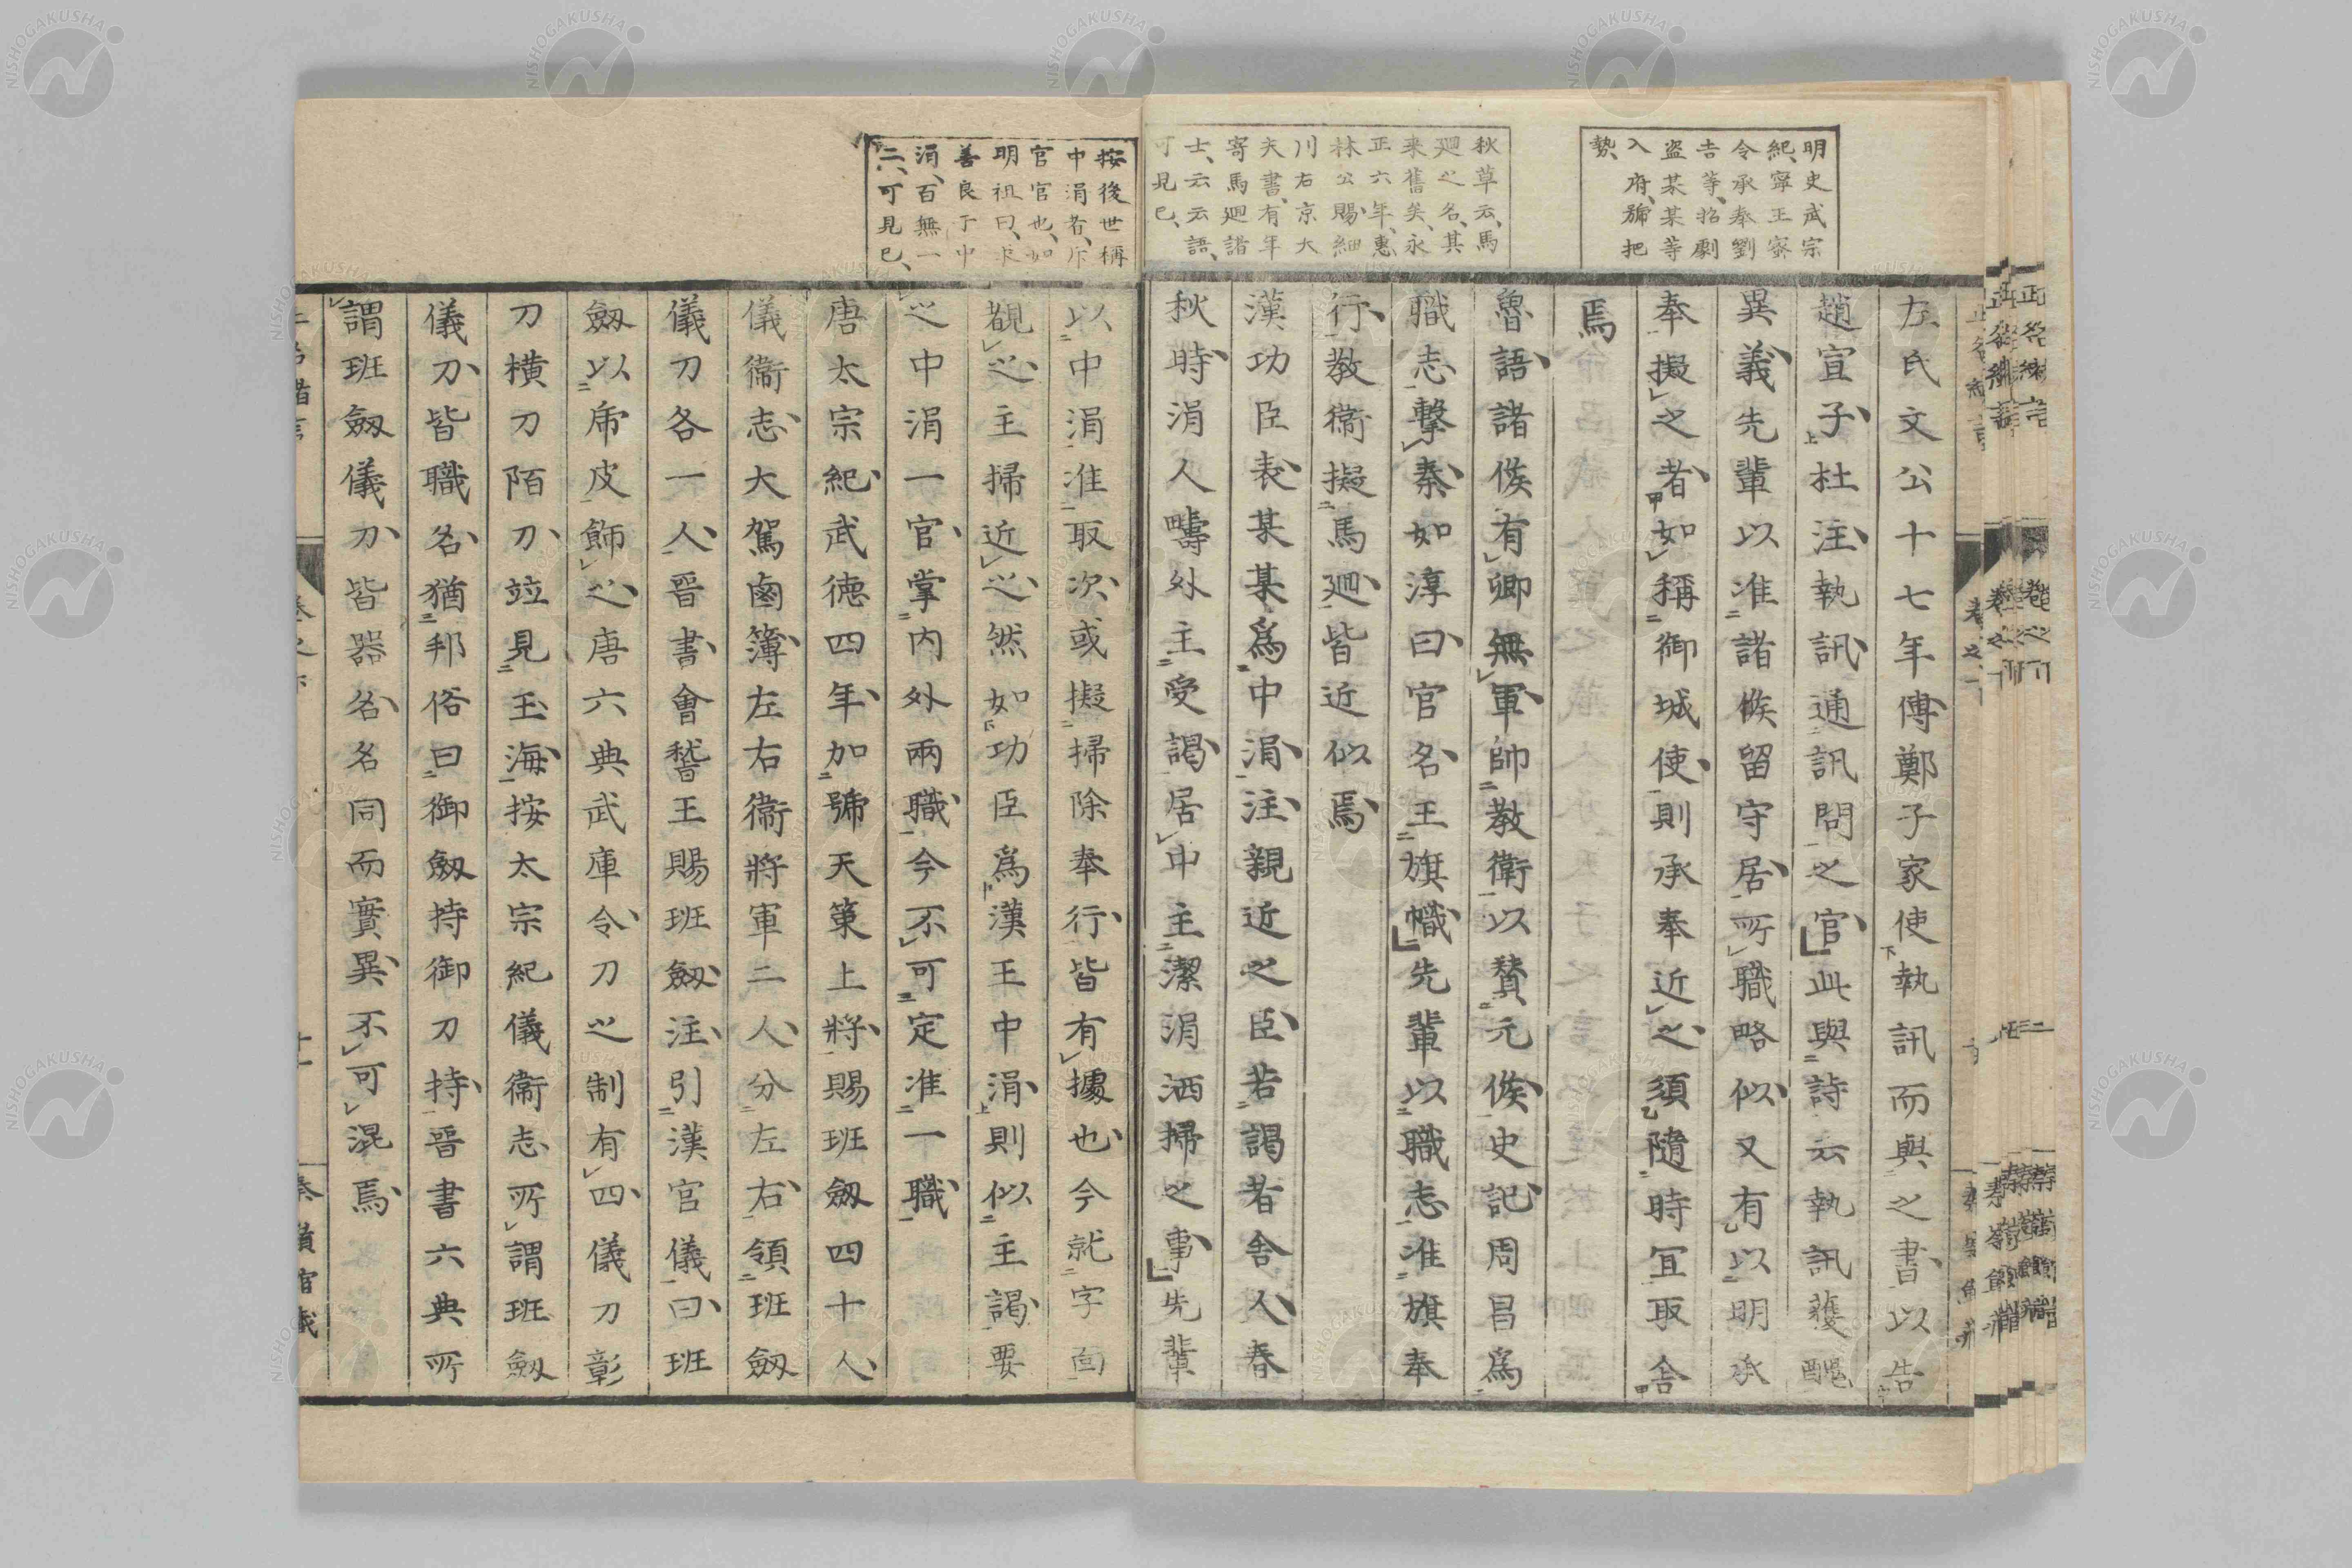 明史武宗
紀寧王宸
令承奉劉
吉等招劇
盗某某等
入府号把
勢
秋草云馬
廻之名其
来舊矣永
正六年惠
林公賜細
川右京大
夫書有年
寄馬廻諸
士云云語
可見已
左氏文公十七年傳鄭子家使執訊而與之書以告
趙宣子杜注執訊通訊問之官此與詩云執訊獲醜
異義先輩以准諸侯留守居所職略似又有以明承
奉擬之者如稱御城使則承奉近之須隨時宜取舍
焉
魯語諸侯有卿無軍帥教衛以賛元侯史記周昌為
職志擊秦如淳曰官名王旗幟先輩以職志准旗奉
行教衛擬馬廻皆近似焉
漢功臣表某某為中涓注親近之臣若謁者舍人春
秋時涓人疇外主受謁居中主潔涓洒掃之事先輩
按後世稱
中涓者斥
官官也如
明祖曰求
善良于中
涓百無一
二可見已
以中涓准取次或擬掃除奉行皆有據也今就字面
觀之主掃近之然如功臣為漢王中涓則似主謁要
之中涓一官掌内外兩職今不可定准一職
唐太宗紀武徳四年加號天策上將賜班劔四十人
儀衞志大駕鹵簿左右衞將軍二人分左右領班劔
儀刀各一人晋書會稽王賜班劔注引漢官儀曰班
劔以虎皮飾之唐六典武庫令刀之制有四儀刀彰
刀横刀陌刀竝見玉海按太宗紀儀衞志所謂班劔
儀刀皆職名猶邦俗曰御劔持御刀持晋書六典所
謂班劔儀刀皆器名名同而實異不可混焉